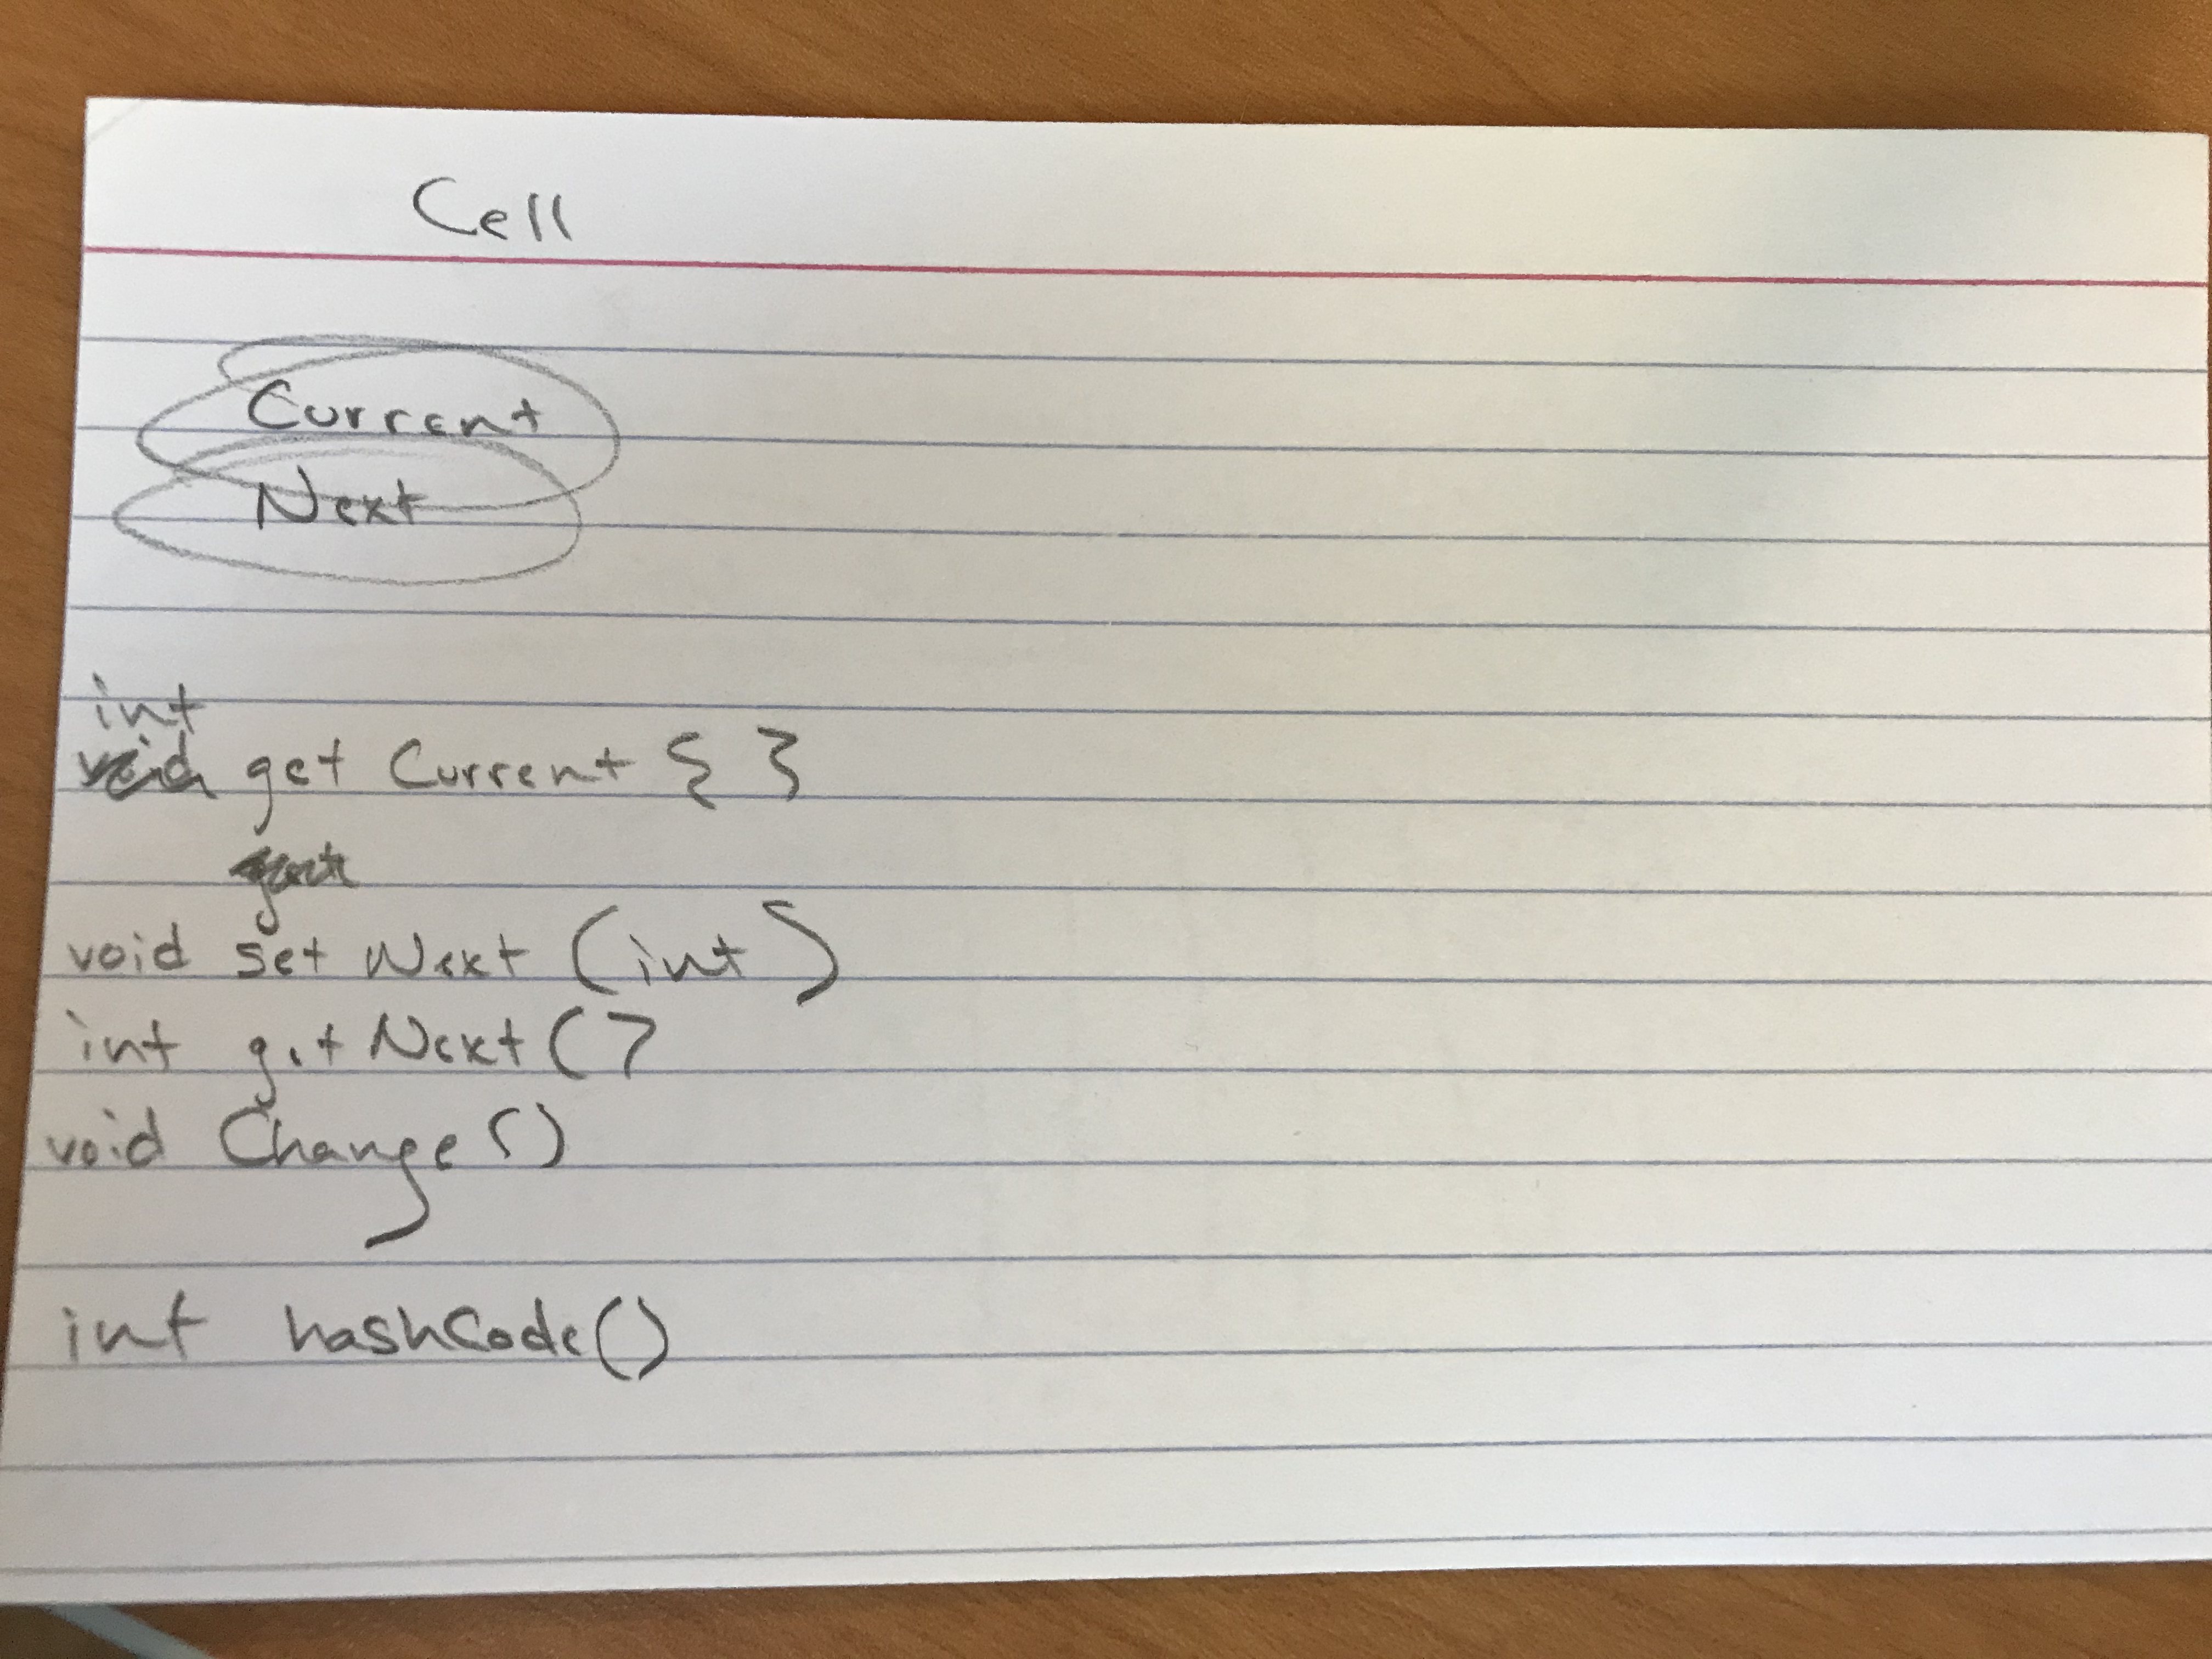 Cell
Current
Next
int
void get Current { }
void set Next (int)
int get Next ()
void Change ()
int hashCode()